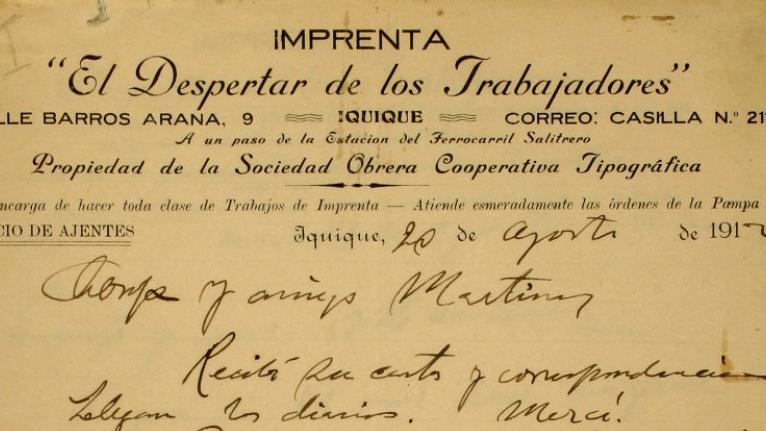 IMPRENTA
"El Despertar de los Trabajadores"
LLE BARROS ARANA, 9 IQUIQUE CORREO: CASILLA N.º 21
A un paso de la Estacion del Ferrocarril Salitrero
Propiedad de la Sociedad Obrera Cooperativa Tipográfica
ncarga de hacer toda clase de Trabajos de Imprenta — Atiende esmeradamente las órdenes de la Pampa
CIO DE AJENTES Iquique, 20 de agosto de 1912
y amigo Martinez
Recibí su carta y correspondencia
Llegan los diarios. Merci.